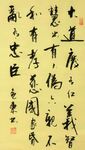 大道廢有仁義智
慧出有大偽六親不
和有孝慈國家昏
亂有忠臣